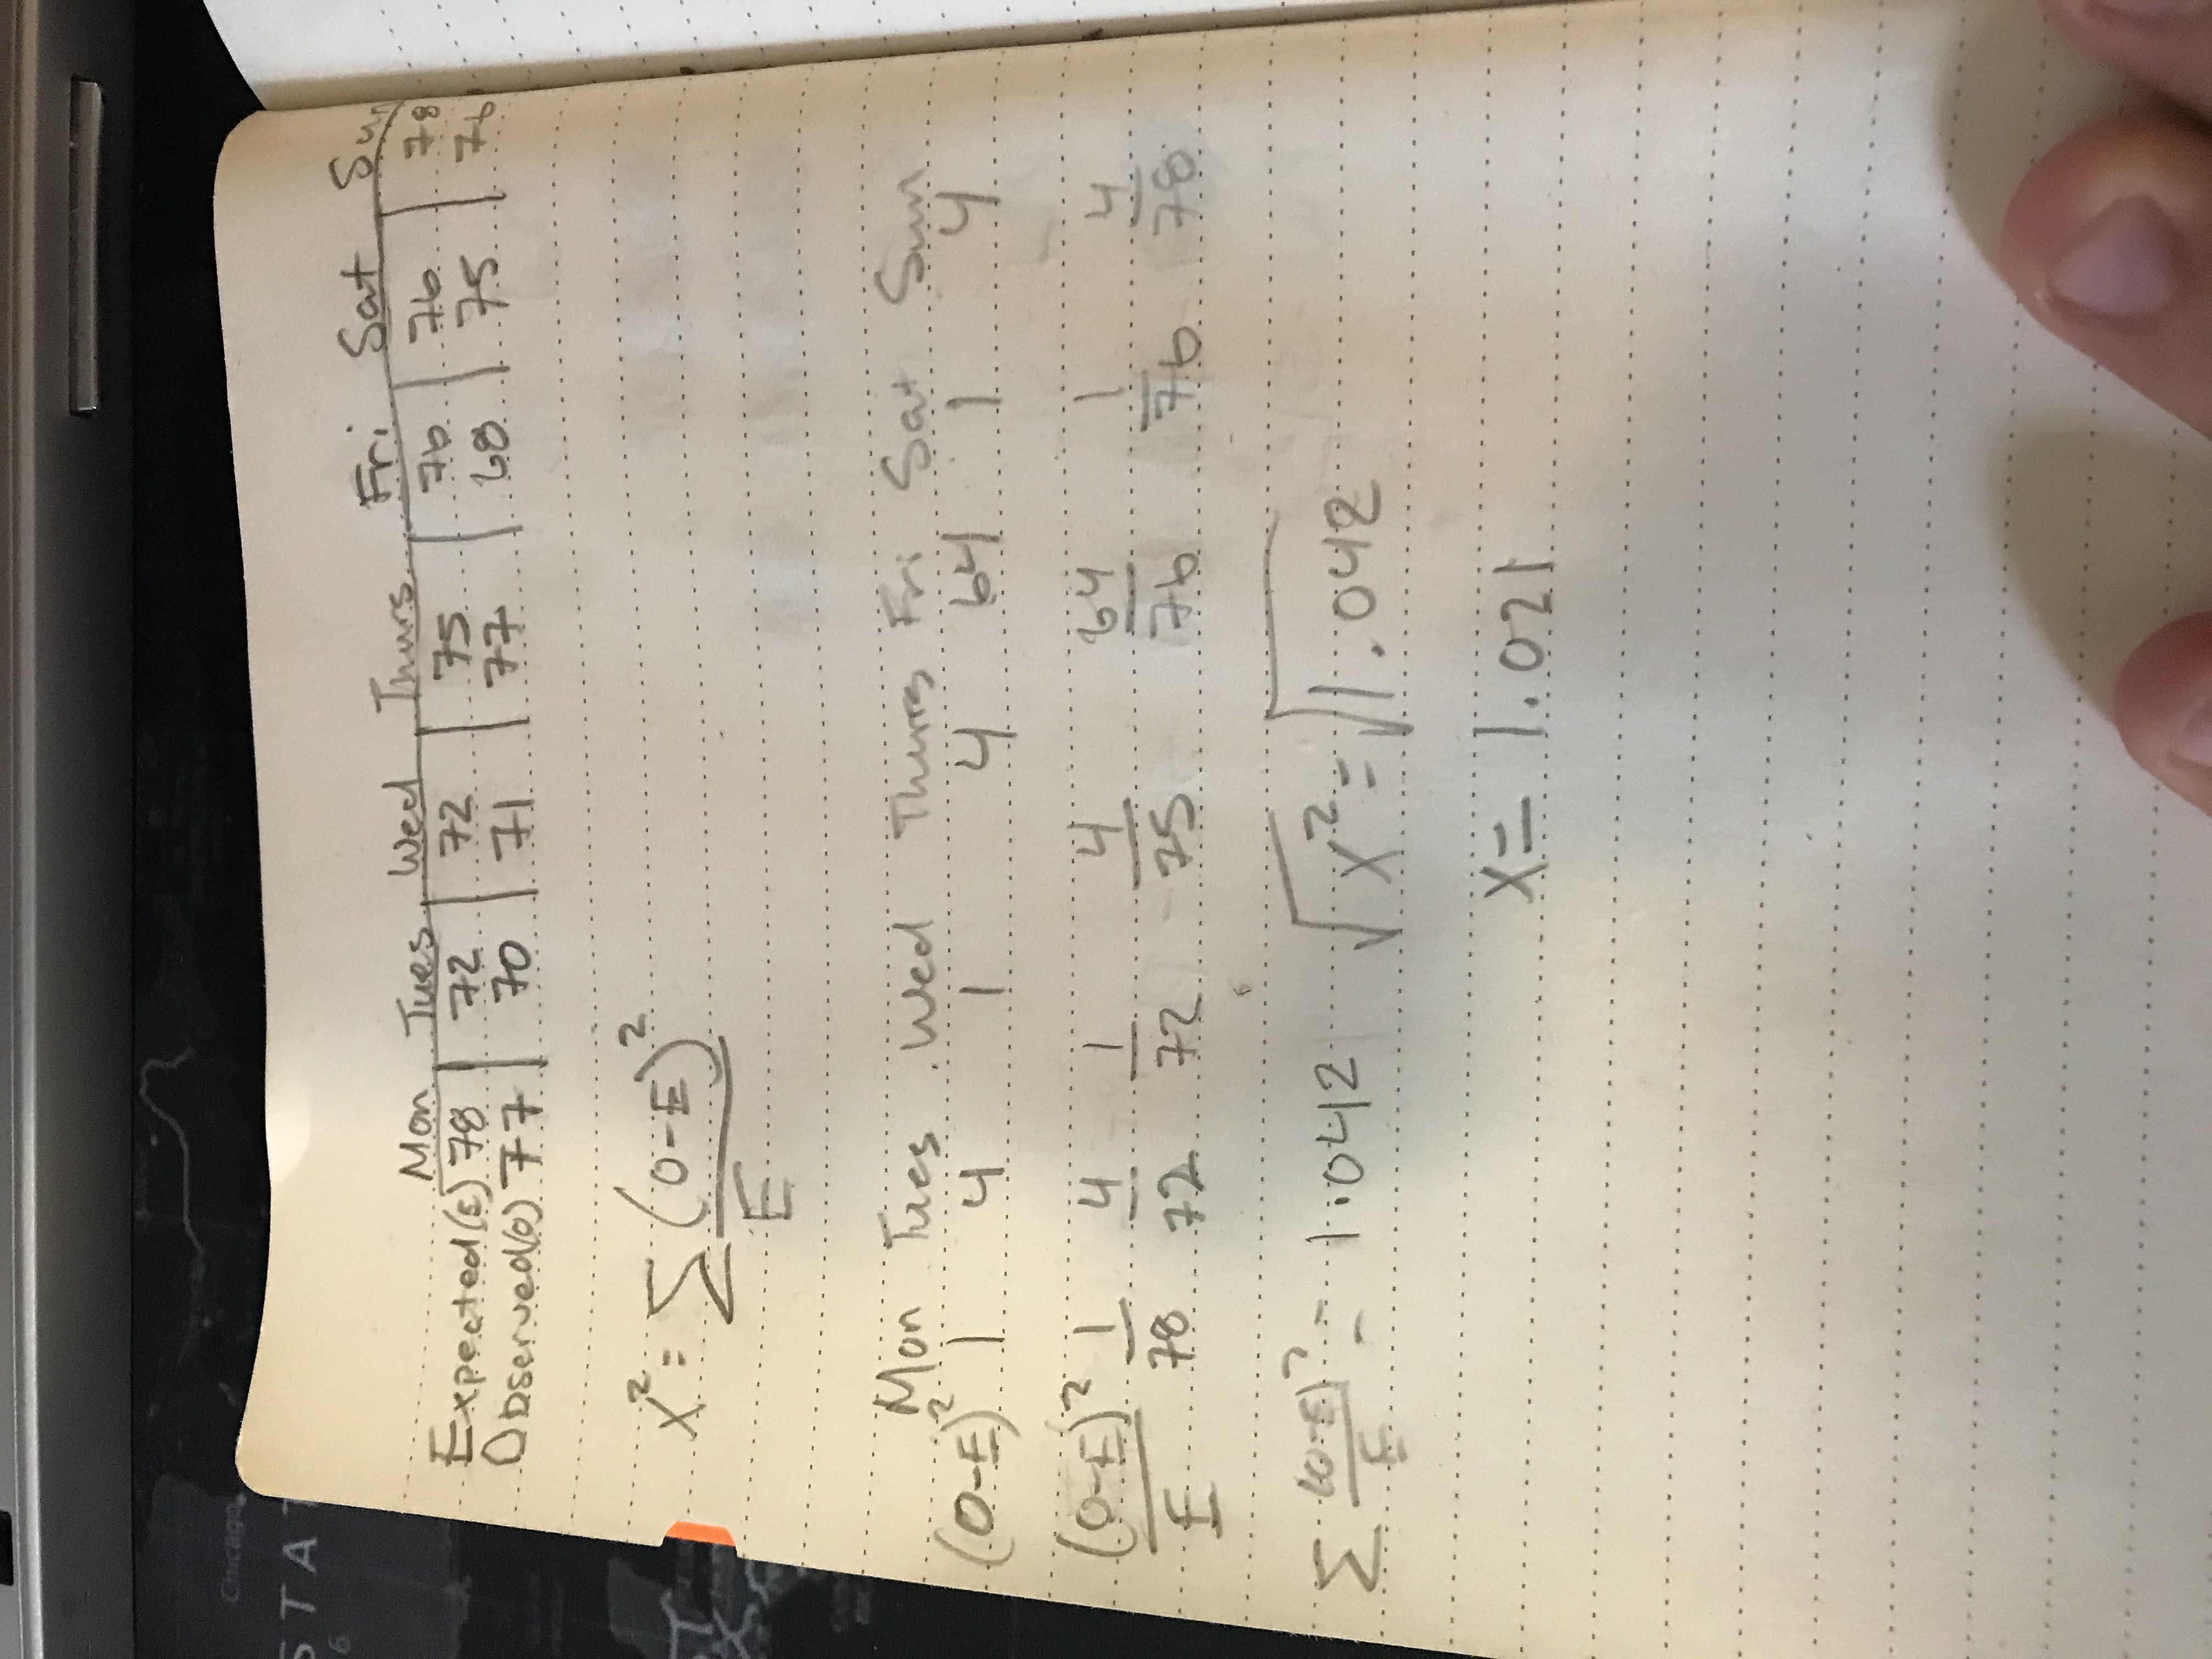 Chicago
STAT
6
Mon Tues Wed Thurs Fri Sat Sun
Expected (E) 78 72 72 75 76 76 78
Observed (O) 77 70 71 77 68 75 76
x² = Σ (O-E)²
E
Mon Tues Wed Thurs Fri Sat Sun
(O-E)² 1 4 1 4 64 1 4
(O-E)² 1 4 1 4 64 1 4
E 78 72 72 75 76 76 78
Σ (O-E)²/E = 1.042 √x² = √1.042
x = 1.021